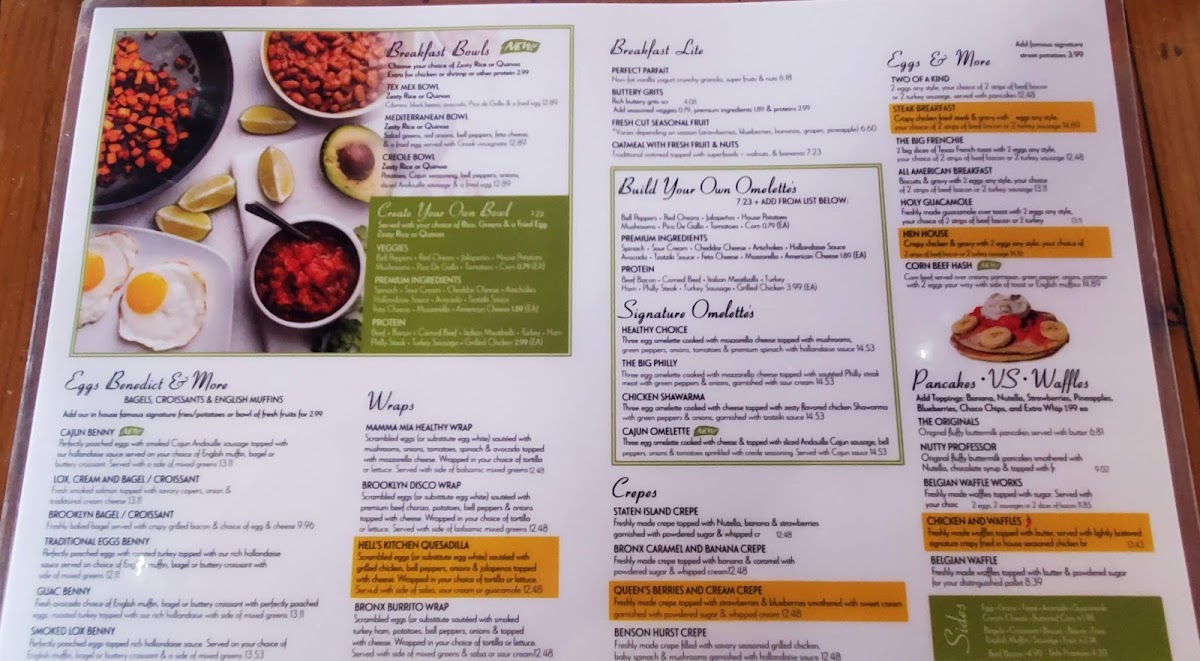 Breakfast Bowls NEW
Choose your choice of Zesty Rice or Quinoa
Extra for chicken or shrimp or other protein 2.99
TEX MEX BOWL
Zesty Rice or Quinoa
Cilantro, black beans, avocado, Pico de Gallo & a fried egg 12.89
MEDITERRANEAN BOWL
Zesty Rice or Quinoa
Salad greens, red onions, bell peppers, feta cheese,
& a fried egg served with Greek vinaigrette 12.89
CREOLE BOWL
Zesty Rice or Quinoa
Potatoes, Cajun seasoning, bell peppers, onions,
sliced Andouille sausage & a fried egg 12.89
Create Your Own Bowl 7.23
Served with your choice of Rice, Greens & a Fried Egg
Zesty Rice or Quinoa
VEGGIES
Bell Peppers • Red Onion • Jalapeños • House Potatoes
Mushrooms • Pico De Gallo • Tomatoes • Corn 0.79 (EA)
PREMIUM INGREDIENTS
Spinach • Sour Cream • Cheddar Cheese • Artichokes
Hollandaise Sauce • Avocado • Tzatziki Sauce
Feta Cheese • Mozzarella • American Cheese 1.89 (EA)
PROTEIN
Beef • Bacon • Corned Beef • Italian Meatballs • Turkey • Ham
Philly Steak • Turkey Sausage • Grilled Chicken 2.99 (EA)
Eggs Benedict & More
BAGELS, CROISSANTS & ENGLISH MUFFINS
Add our in house famous signature fries/potatoes or bowl of fresh fruits for 2.99
CAJUN BENNY NEW
Perfectly poached eggs with smoked Cajun Andouille sausage topped with
our hollandaise sauce served on your choice of English muffin, bagel or
buttery croissant. Served with a side of mixed greens 13.11
LOX, CREAM AND BAGEL / CROISSANT
Fresh smoked salmon topped with savory capers, onion &
traditional cream cheese 13.11
BROOKLYN BAGEL / CROISSANT
Freshly baked bagel served with crispy grilled bacon & choice of egg & cheese 9.96
TRADITIONAL EGGS BENNY
Perfectly poached eggs with roasted turkey topped with our rich hollandaise
sauce served on choice of English muffin, bagel or buttery croissant with
side of mixed greens 12.11
GUAC BENNY
Fresh avocado choice of English muffin, bagel or buttery croissant with perfectly poached
eggs, roasted turkey topped with our rich hollandaise with side of mixed greens 13.11
SMOKED LOX BENNY
Perfectly poached eggs topped with rich hollandaise sauce. Served on your choice of
English muffin, bagel or buttery croissant & a side of mixed greens 13.53
Wraps
MAMMA MIA HEALTHY WRAP
Scrambled eggs (or substitute egg white) sautéed with
mushrooms, onions, tomatoes, spinach & avocado topped
with mozzarella cheese. Wrapped in your choice of tortilla
or lettuce. Served with side of balsamic mixed greens 12.48
BROOKLYN DISCO WRAP
Scrambled eggs (or substitute egg white) sautéed with
premium beef chorizo, potatoes, bell peppers & onions
topped with cheese. Wrapped in your choice of tortilla
or lettuce. Served with side of balsamic mixed greens 12.48
HELL'S KITCHEN QUESADILLA
Scrambled eggs (or substitute egg white) sautéed with
grilled chicken, bell peppers, onions & jalapenos topped
with cheese. Wrapped in your choice of tortilla or lettuce.
Served with side of salsa, sour cream or guacamole 12.48
BRONX BURRITO WRAP
Scrambled eggs (or substitute egg white) sautéed with smoked
turkey ham, potatoes, bell peppers, onions & topped
with cheese. Wrapped in your choice of tortilla or lettuce.
Served with side of mixed greens & salsa or sour cream 12.48
Breakfast Lite
PERFECT PARFAIT
Non-fat vanilla yogurt crunchy granola, super fruits & nuts 6.18
BUTTERY GRITS
Rich buttery grits 4.08
Add seasoned veggies 0.79, premium ingredients 1.89 & proteins 2.99
FRESH CUT SEASONAL FRUIT
*Varies depending on season (strawberries, blueberries, bananas, grapes, pineapple) 6.60
OATMEAL WITH FRESH FRUIT & NUTS
Traditional oatmeal topped with superfoods – walnuts, & bananas 7.23
Build Your Own Omelette's
7.23 + ADD FROM LIST BELOW:
Bell Peppers • Red Onions • Jalapeños • House Potatoes
Mushrooms • Pico De Gallo • Tomatoes • Corn 0.79 (EA)
PREMIUM INGREDIENTS
Spinach • Sour Cream • Cheddar Cheese • Artichokes • Hollandaise Sauce
Avocado • Tzatziki Sauce • Feta Cheese • Mozzarella • American Cheese 1.89 (EA)
PROTEIN
Beef Bacon • Corned Beef • Italian Meatballs • Turkey
Ham • Philly Steak • Turkey Sausage • Grilled Chicken 3.99 (EA)
Signature Omelette's
HEALTHY CHOICE
Three egg omelette cooked with mozzarella cheese topped with mushrooms,
green peppers, onions, tomatoes & premium spinach with hollandaise sauce 14.53
THE BIG PHILLY
Three egg omelette cooked with mozzarella cheese topped with sautéed Philly steak
meat with green peppers & onions, garnished with sour cream 14.53
CHICKEN SHAWARMA
Three egg omelette cooked with cheese topped with zesty flavored chicken Shawarma
with green peppers & onions, garnished with tzatziki sauce 14.53
CAJUN OMELETTE NEW
Three egg omelette cooked with cheese & topped with sliced Andouille Cajun sausage, bell
peppers, onions & tomatoes sprinkled with creole seasoning. Served with Cajun sauce 14.53
Crepes
STATEN ISLAND CREPE
Freshly made crepe topped with Nutella, banana & strawberries
garnished with powdered sugar & whipped cr 12.48
BRONX CARAMEL AND BANANA CREPE
Freshly made crepe topped with banana & caramel with
powdered sugar & whipped cream 12.48
QUEEN'S BERRIES AND CREAM CREPE
Freshly made crepe topped with strawberries & blueberries smothered with sweet cream
garnished with powdered sugar & whipped cream 12.48
BENSON HURST CREPE
Freshly made crepe filled with savory seasoned grilled chicken,
baby spinach & mushrooms garnished with hollandaise sauce 12.48
Eggs & More
Add famous signature
street potatoes 3.99
TWO OF A KIND
2 eggs any style, your choice of 2 strips of beef bacon
or 2 turkey sausage, served with pancakes 12.48
STEAK BREAKFAST
Crispy chicken fried steak & gravy with eggs any style,
your choice of 2 strips of beef bacon or 2 turkey sausage 14.89
THE BIG FRENCHIE
2 big slices of Texas French toast with 2 eggs any style,
your choice of 2 strips of beef bacon or 2 turkey sausage 12.48
ALL AMERICAN BREAKFAST
Biscuits & gravy with 2 eggs any style, your choice
of 2 strips of beef bacon or 2 turkey sausage 13.11
HOLY GUACAMOLE
Freshly made guacamole over toast with 2 eggs any style,
your choice of 2 strips of beef bacon or 2 turkey 13.11
HEN HOUSE
Crispy chicken & gravy with 2 eggs any style, your choice of
2 strips of beef bacon or 2 turkey sausage 14.16
CORN BEEF HASH NEW
Corn beef served over creamy parmesan, green pepper, onions, potatoes
with 2 eggs your way with side of toast or English muffins 14.89
Pancakes • VS • Waffles
Add Toppings: Banana, Nutella, Strawberries, Pineapples,
Blueberries, Choco Chips, and Extra Whip 1.99 ea
THE ORIGINALS
Original fluffy buttermilk pancakes, served with butter 6.81
NUTTY PROFESSOR
Original fluffy buttermilk pancakes smothered with
Nutella, chocolate syrup & topped with fr 9.02
BELGIAN WAFFLE WORKS
Freshly made waffles topped with sugar. Served with
your choic 2 eggs, 2 sausages or 2 slices of bacon 11.85
CHICKEN AND WAFFLES
Freshly made waffles topped with butter, served with lightly battered
signature crispy fried in house seasoned chicken br 13.63
BELGIAN WAFFLE
Freshly made waffles topped with butter & powdered sugar
for your distinguished pallet 8.39
Sides